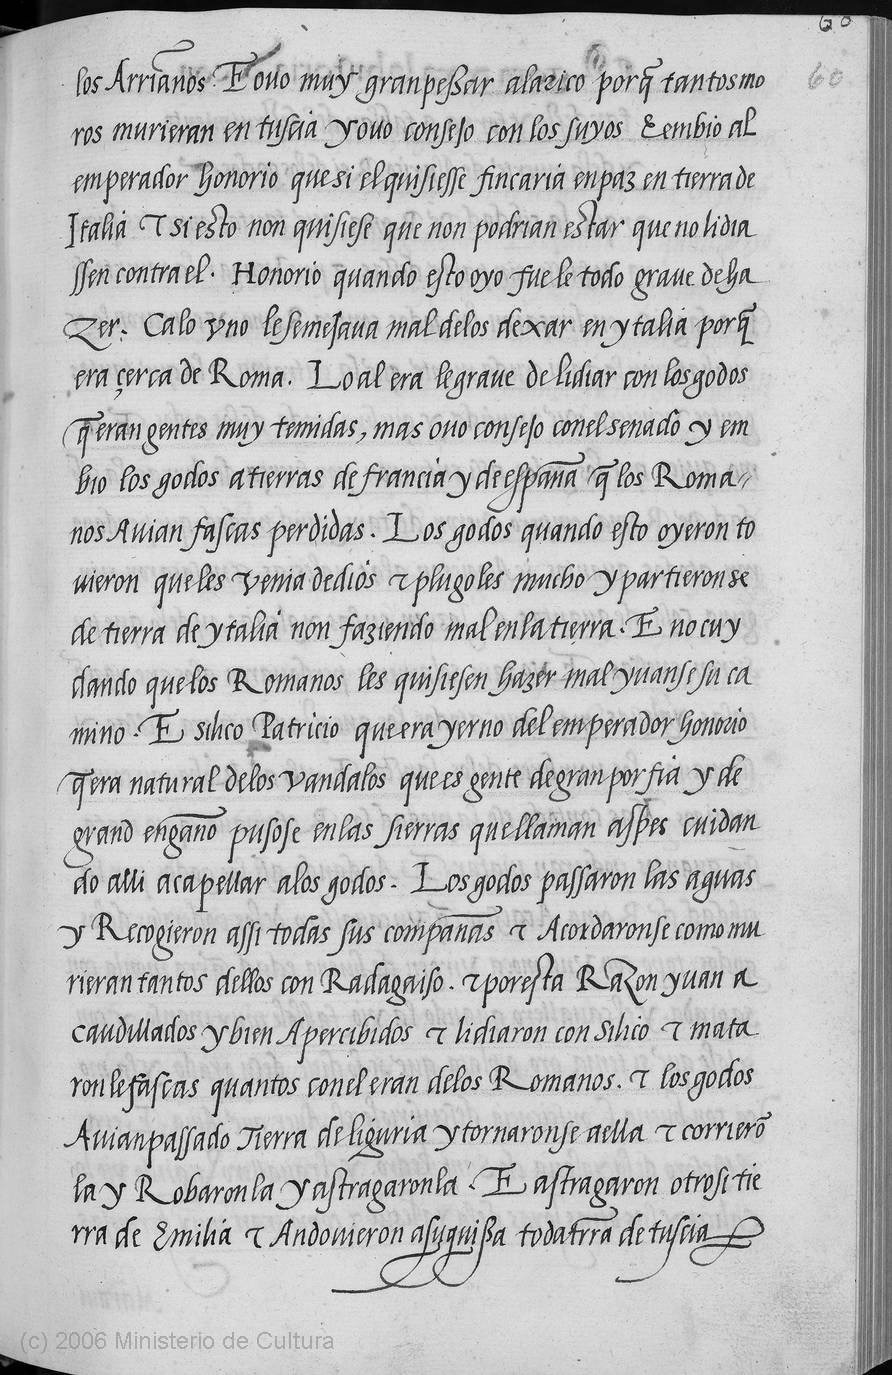 60
60
los Arrianos. E ovo muy gran peßar alarico porq̃ tantos mo
ros murieran en tuscia y ovo consejo con los suyos & embio al
emperador honorio que si el quisiesse fincaria en paz en tierra de
Italia & si esto non quisiese que non podrian estar que no lidia
ssen contra el. Honorio quando esto oyo fue le todo grave de ha
zer. Ca lo vno le semejava mal de los dexar en ytalia porq̃
era çerca de Roma. Lo al era le grave de lidiar con los godos
q̃ eran gentes muy temidas, mas ovo consejo con el senado y em
bio los godos a tierras de francia y de españa q̃ los Roma
nos Avian fascas perdidas. Los godos quando esto oyeron to
uieron que les venia de dios & plugoles mucho y partieronse
de tierra de ytalia non faziendo mal en la tierra. E no cuy
dando que los Romanos les quisiesen hazer mal yuanse su ca
mino. E silico Patricio que era yerno del emperador honorio
q̃ era natural de los vandalos que es gente de gran porfia y de
grand engaño pusose en las sierras que llaman aspes cuidan
do alli acapellar a los godos. Los godos passaron las aguas
y Recogieron assi todas sus compañas & Acordaronse como mu
rieran tantos dellos con Radagaiso. & por esta Razon yuan a
caudillados y bien Apercibidos & lidiaron con silico & mata
ron le fascas quantos con el eran de los Romanos. & los godos
Avian passado Tierra de liguria y tornaronse a ella & corrierõ
la y Robaronla y astragaronla. E astragaron otrosi tie
rra de Emilia & Andovieron a su guißa toda trra de tuscia
(c) 2006 Ministerio de Cultura